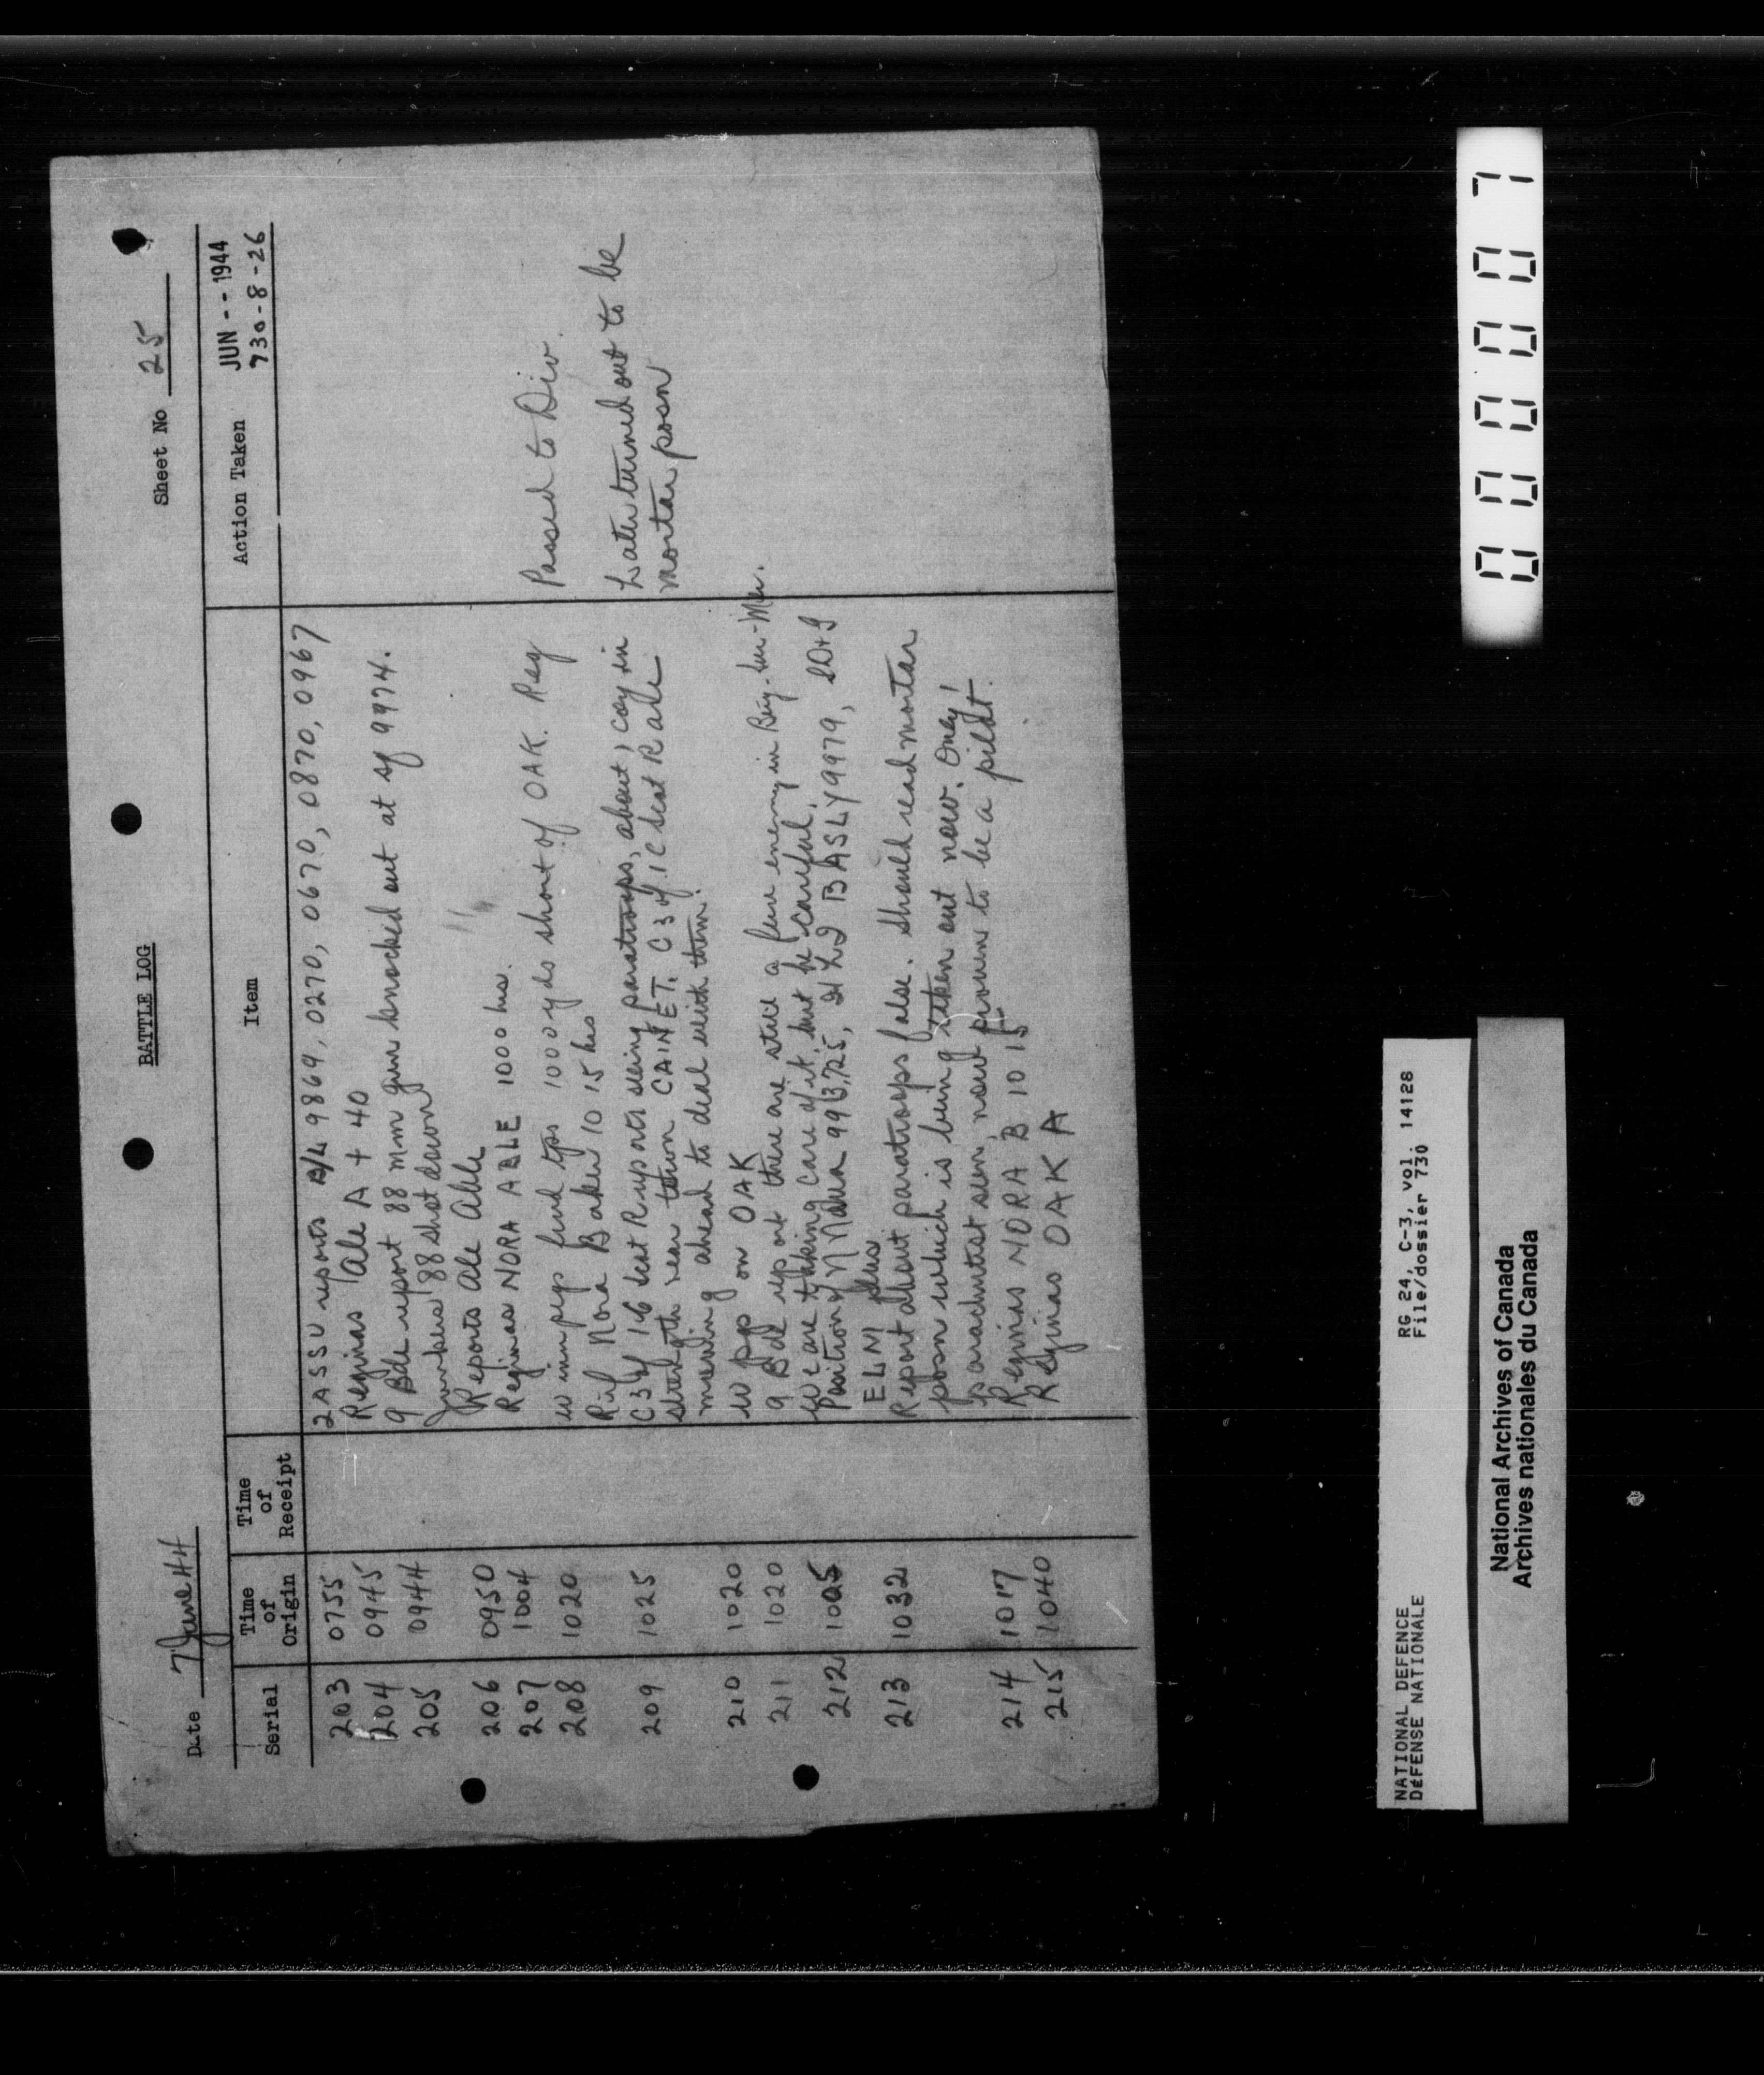 BATTLE LOG
Date 7 June 44
Sheet No 25
Serial
Time of Origin
Time of Receipt
Item
Action Taken
JUN - - 1944
730-8-26
203 0755 2 ASSU reports 9869, 0270, 0670, 0870, 0967
204 0945 Reginas Able A + 40
205 0944 9 Bde report 88 mm gun knocked out at sq 9974.
Junkers 88 shot down
206 0950 Reports Able Able
207 1004 Reginas NORA ABLE 1000 hrs.
208 1020 winnipegs fwd tps 1000 yds short of OAK. Reg
Rif Nora Baker 1015 hrs
Passed to Div.
209 1025 C3 of 1C Scot R reports seeing paratroops, about 1 coy in
strength near town CAINET. C3 of 1C Scot R are
moving ahead to deal with them.
Later turned out to be
mortar posn
210 1020 w pgs on OAK
211 1020 9 Bde report there are still a few enemy in Beny-sur-Mer.
we are taking care of it, but be careful.
212 1025 Position of 99 BASLY 9979,
ELM
213 1032 Report about paratroops false. Should read mortar
posn which is being taken out now. Only 1
parachutist seen, now proven to be a pilot.
214 1017 Reginas NORA B 1015
215 1040 Reginas OAK A
NATIONAL DEFENCE
DéFENSE NATIONALE
RG 24, C-3, vol. 14128
File/dossier 730
National Archives of Canada
Archives nationales du Canada
000007